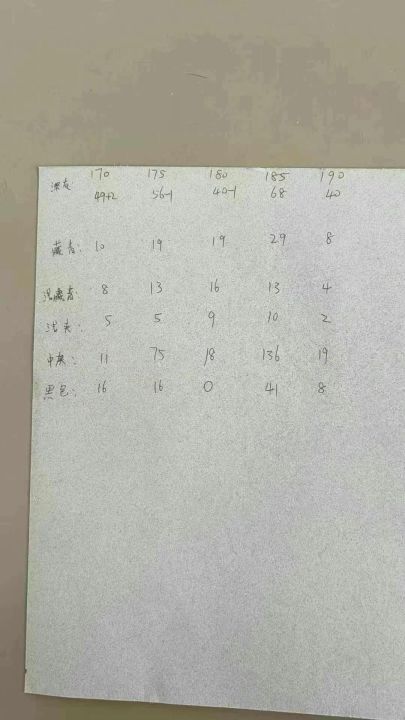 170 175 180 185 190
深灰: 49+2 56-1 40-1 68 40
藏青: 10 19 19 29 8
浅藏青: 8 13 16 13 4
浅灰: 5 5 9 10 2
中灰: 11 75 18 136 19
黑色: 16 16 0 41 8